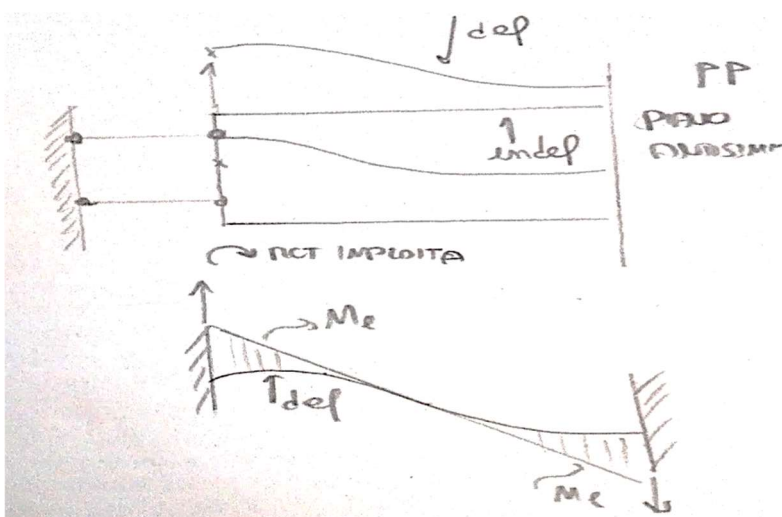 def
PP
PIANO
ANTISIMM
indef
ROT IMPEDITA
Me
def
Me